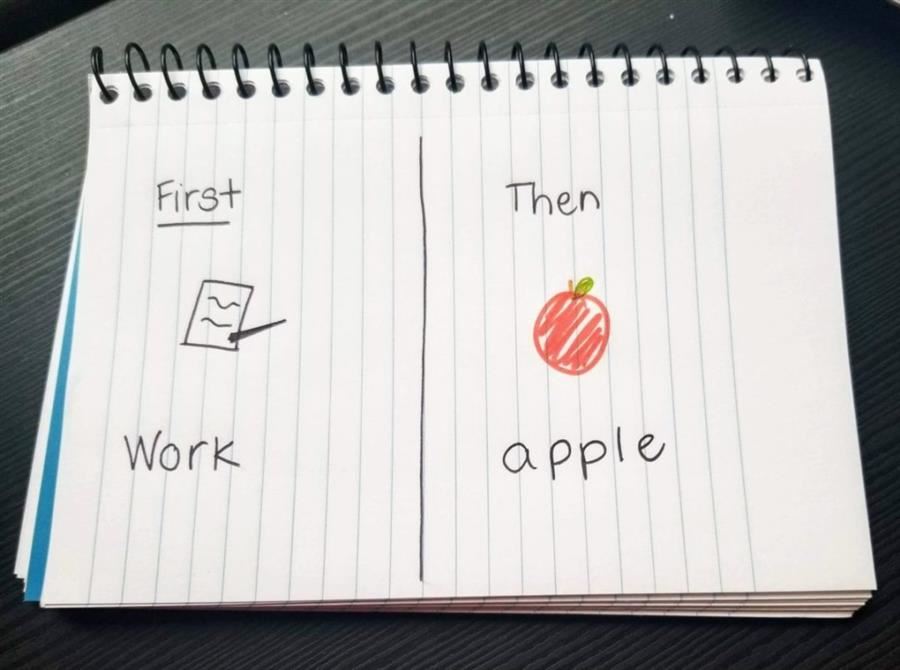 First
Work
Then
apple